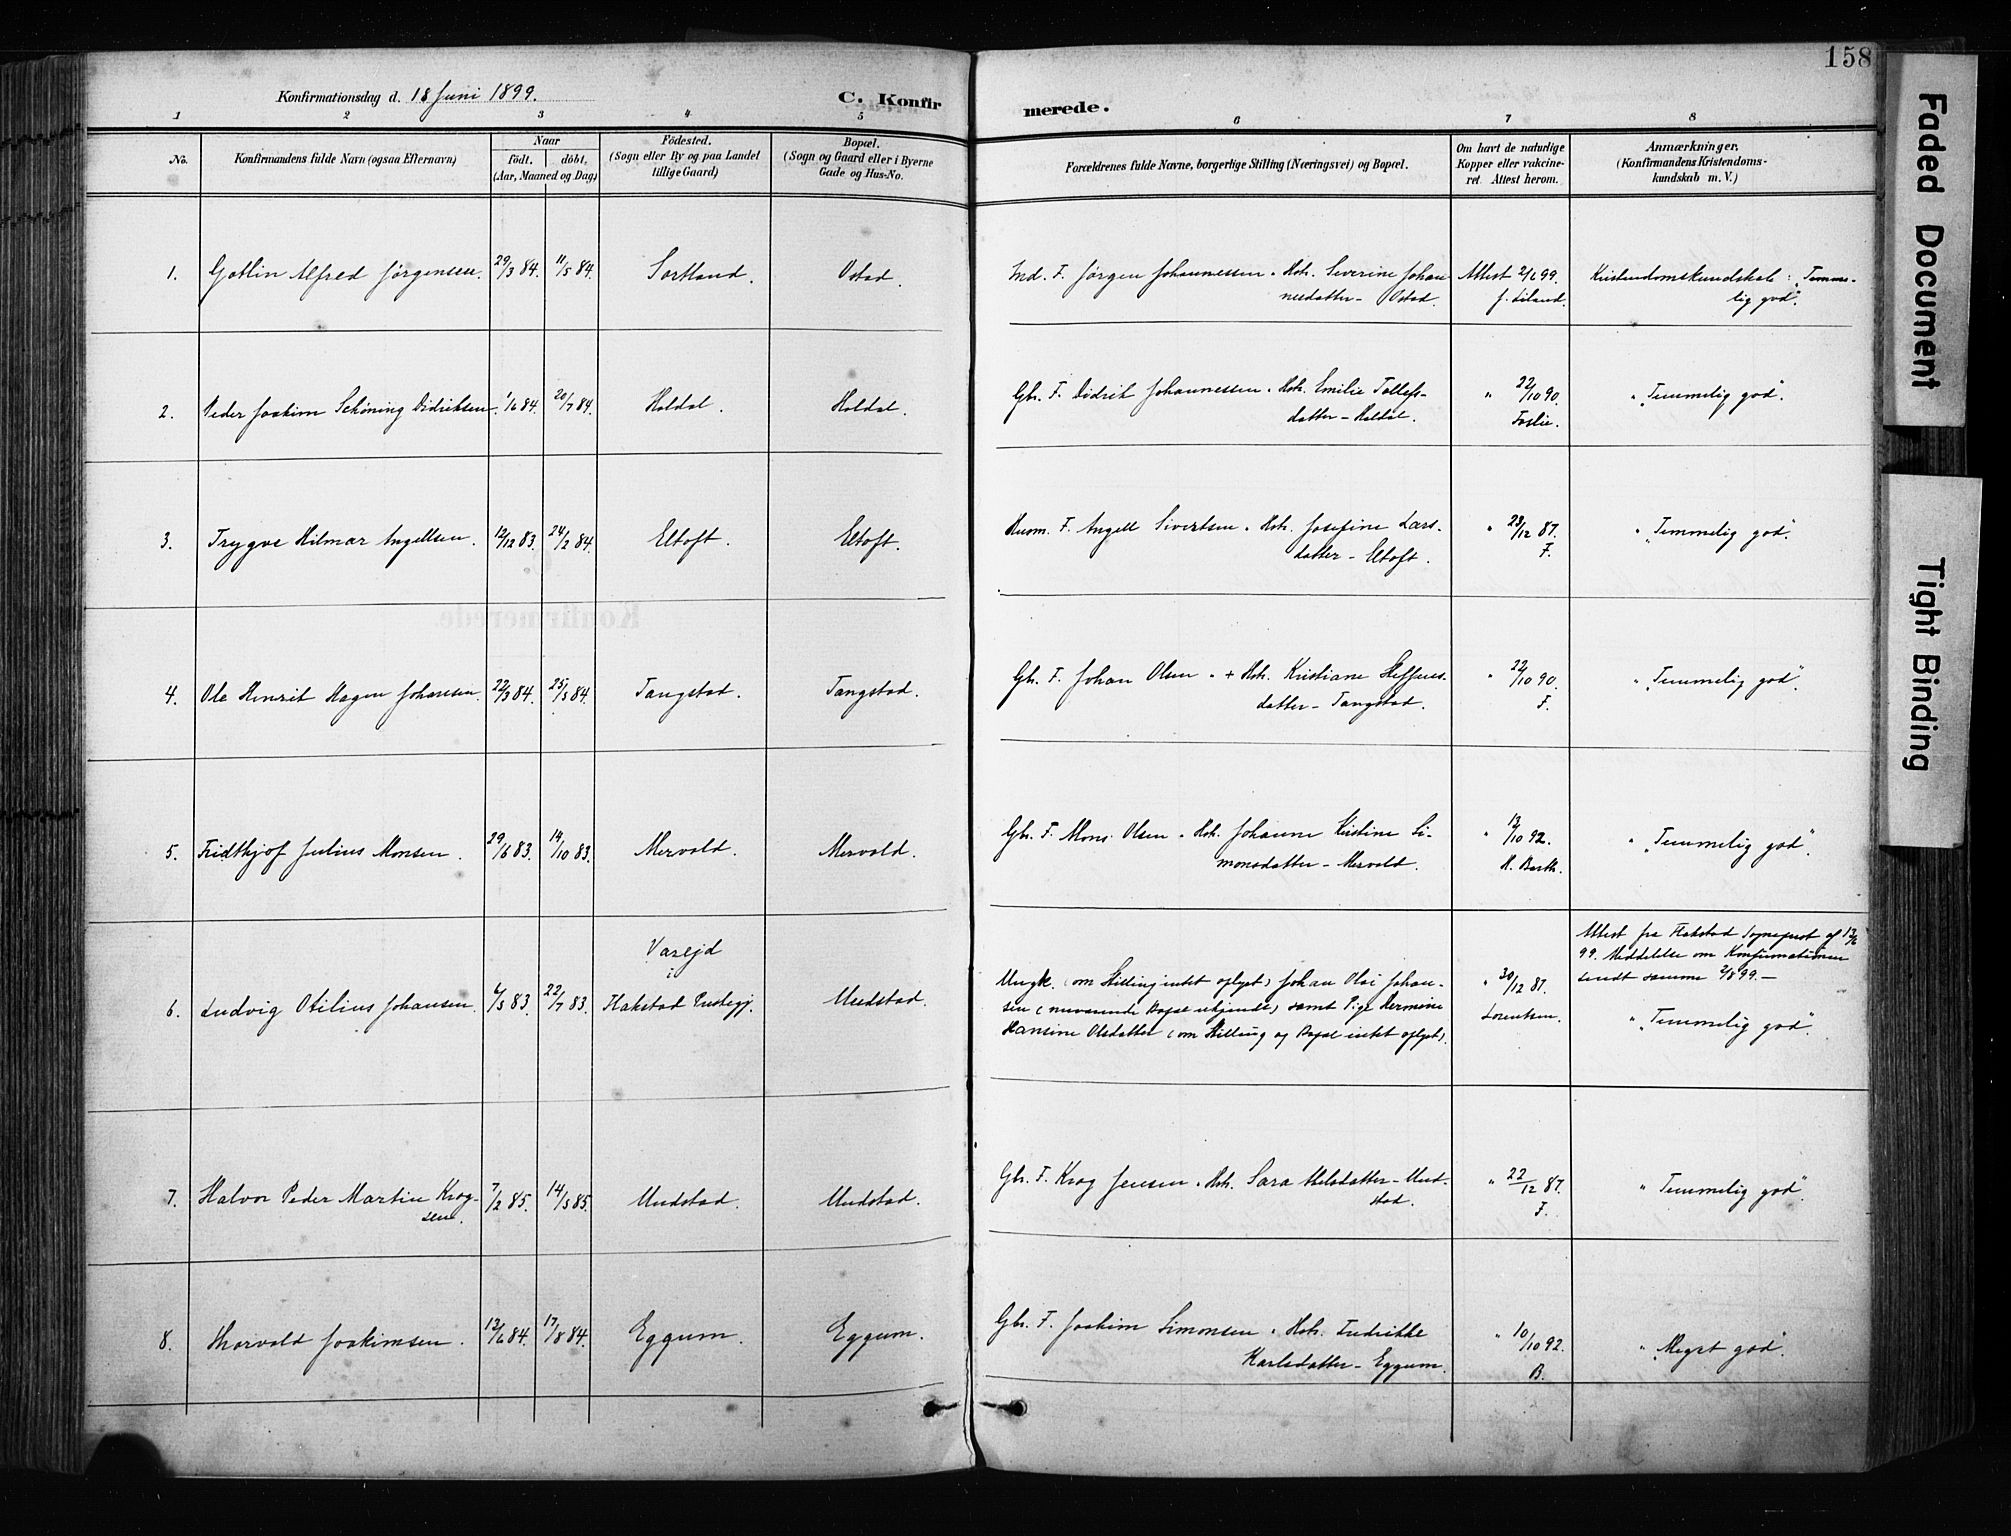 158
Konfirmationsdag d. 18 Juni 1899.
C. Konfirmerede.
1 2 3 4 5 6 7 8
No.
Konfirmandens fulde Navn (ogsaa Efternavn)
Naar
født, døbt,
(Aar, Maaned og Dag)
Fødested.
(Sogn eller By og paa Landet
tillige Gaard)
Bopæl.
(Sogn og Gaard eller i Byerne
Gade og Hus-No.
Forældrenes fulde Navne, borgerlige Stilling (Næringsvei) og Bopæl.
Om havt de naturlige
Kopper eller vakcine-
ret. Attest herom.
Anmærkninger.
(Konfirmandens Kristendoms-
kundskab m. V.)
1. Gotlin Alfred Jørgensen. 29/3 84. 11/5 84. Sortland. Ostad. Ind. F. Jørgen Johannessen. Hst. Severine Johan
nesdatter - Ostad.
Attest 2/6 99.
Kristendomskundskab: "Temme-
lig god".
2. Peder Joakim Schöning Didriksen. 1/6 84. 20/7 84. Holdal. Holdal. Gbr. F. Didrik Johannessen. Hst. Emilie Tollefs-
datter - Holdal.
" 22/10 90.
Foslie.
" "Temmelig god".
3. Trygve Hilmar Angellsen. 12/12 83. 24/2 84. Eltoft. Eltoft. Husm. F. Angell Sivertsen. Hst. Josefine Lars-
datter - Eltoft.
" 23/12 87.
F.
" "Temmelig god".
4. Ole Henrik Hagen Johansen. 22/3 84. 25/5 84. Tangstad. Tangstad. Gbr. F. Johan Olsen " + Hst. Kristiane Steffens-
datter - Tangstad.
" 22/10 90.
F.
" "Temmelig god".
5. Fridthjof Julius Monsen. 29/6 83. 14/10 83. Mervold. Mervold. Gbr. F. Mons Olsen. Hst. Johanne Kristine Si-
monsdatter - Mervold.
" 13/10 92.
H. Barth.
" "Temmelig god".
6. Ludvig Otilius Johansen. 4/5 83. 22/7 83. Varejd
i
Hakstad Præstegj.
Undstad.
Ungk. (om Stilling intet oplyst) Johan Olai Johan-
sen (nuværende Bopæl ukjendt) samt Pige Hermine
Hansine Olsdatter (om Stilling og Bopæl intet oplyst).
" 30/12 87.
Lorentsen.
Attest fra Hakstad Sogneprest af 13/6
99. Meddelelse om Konfirmationen
sendt samme 2/8 99. -
" "Temmelig god".
7. Halvor Peder Martin Krog-
sen.
7/2 85. 14/5 85. Undstad. Undstad. Gbr. F. Krog Jensen. Hst. Sara Nilsdatter - Und-
stad.
" 22/12 87.
F.
" "Temmelig god".
8. Thorvald Joakimsen. 13/6 84. 17/8 84. Eggum. Eggum. Gbr. F. Joakim Simonsen. Hst. Fredrikke
Karlsdatter - Eggum.
" 10/10 92.
B.
" "Meget god".
Faded Document
Tight Binding